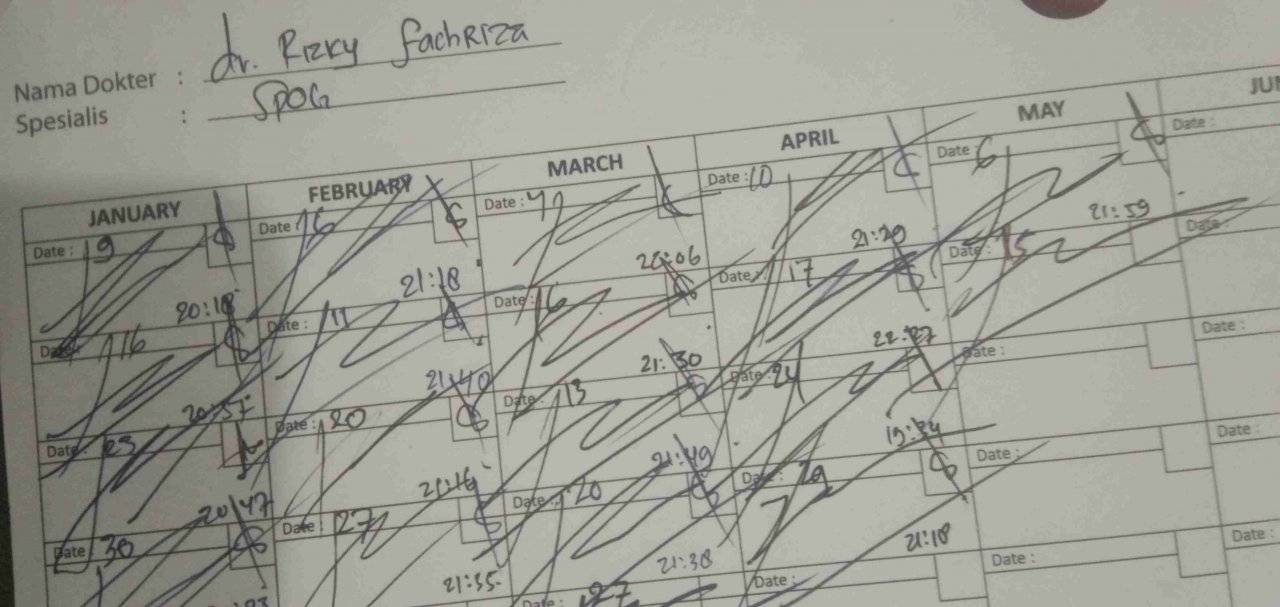 Nama Dokter : dr. Rizky fachRiza
Spesialis : SPOG
JANUARY FEBRUARY MARCH APRIL MAY JUN
Date : 9 Date : 6 Date : Date : 10 Date : 6 Date :
20:18 21:18 21:29 21:59
Date : 16 Date : Date : 16 Date : 17 Date : 15 Date :
20:57 21:40 21:30 22:27
Date : 23 Date : 20 Date : 13 Date : 24 Date : Date :
20:47 21:49 19:34
Date : 30 Date : 27 Date : 20 Date : 29 Date : Date :
21:35 21:38 21:18
Date : 27 Date : Date : Date :